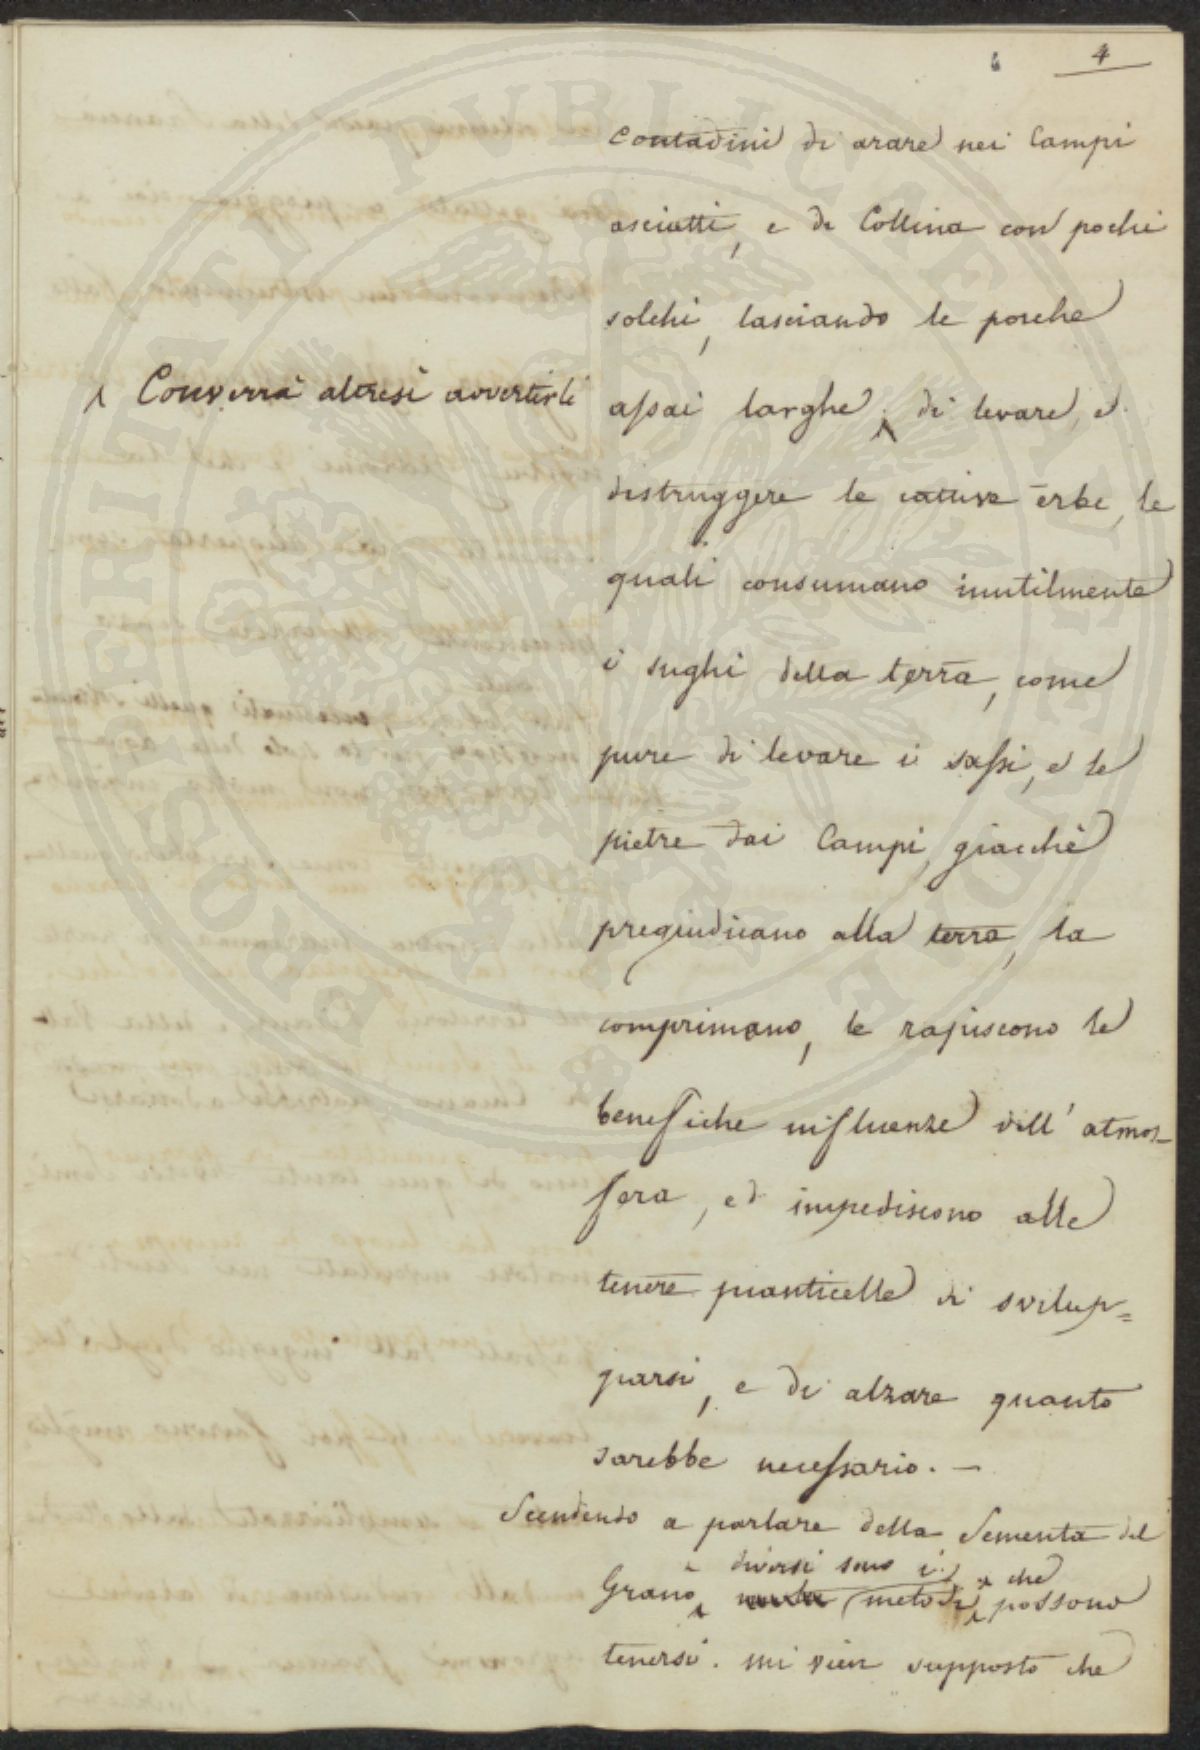 4
contadini di arare nei Campi
asciutti, e di Collina con pochi
solchi, lasciando le porche
Converrà altresì avvertirli
assai larghe, di levare, e
distruggere le cattive erbe, le
quali consumano inutilmente
i sughi della terra, come
pure di levare i sassi, e le
pietre dai Campi, giacchè
pregiudicano alla terra, la
comprimono, le rapiscono le
benefiche influenze dell' atmos-
fera, ed impediscono alle
tenere pianticelle di svilup=
parsi, e di alzare quanto
sarebbe necessario. —
Scendendo a parlare della Sementa del
diversi sono i che
Grano, metodi, possono
tenersi. mi vien supposto che
PROSPERITATI PUBLICAE AUGENDAE